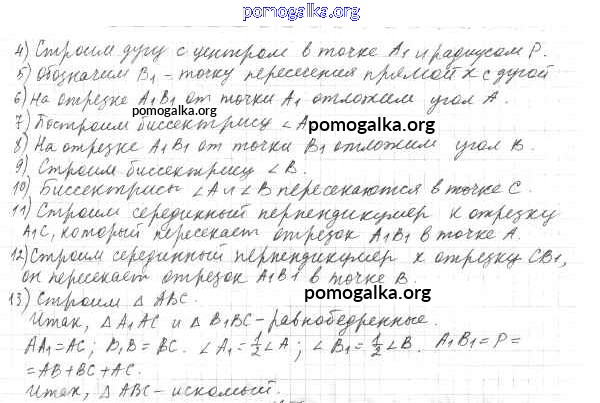 pomogalka.org
4) Строим дугу с центром в точке A₁ и радиусом P.
5) Обозначим B₁ – точку пересечения прямой x с дугой
6) На отрезке A₁B₁ от точки A₁ отложим угол A.
pomogalka.org
7) Построим биссектрису ∠A
pomogalka.org
8) На отрезке A₁B₁ от точки B₁ отложим угол B.
9) Строим биссектрису ∠B.
10) Биссектрисы ∠A и ∠B пересекаются в точке C.
11) Строим серединный перпендикуляр к отрезку
A₁C, который пересекает отрезок A₁B₁ в точке A.
12) Строим серединный перпендикуляр к отрезку CB₁,
он пересекает отрезок A₁B₁ в точке B.
13) Строим △ ABC.
pomogalka.org
Итак, △ A₁AC и △ B₁BC – равнобедренные.
AA₁=AC; B₁B=BC. ∠A₁=½∠A; ∠B₁=½∠B. A₁B₁=P=
=AB+BC+AC.
Итак, △ ABC – искомый.